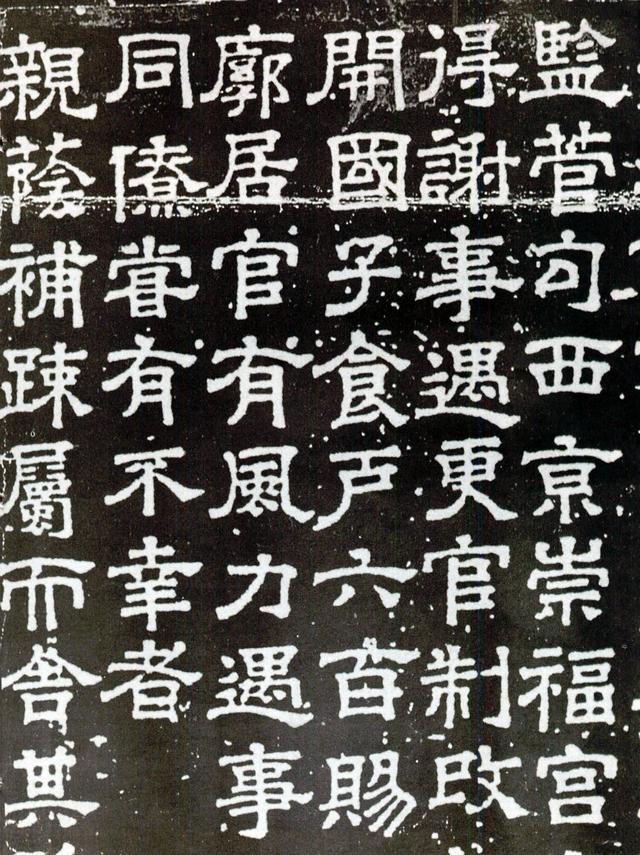 監菅句西京崇福宮
得謝事遇更官制改
開國子食户六百賜
廓居官有風力遇事
同僚甞有不幸者
親蔭補踈屬而舍其